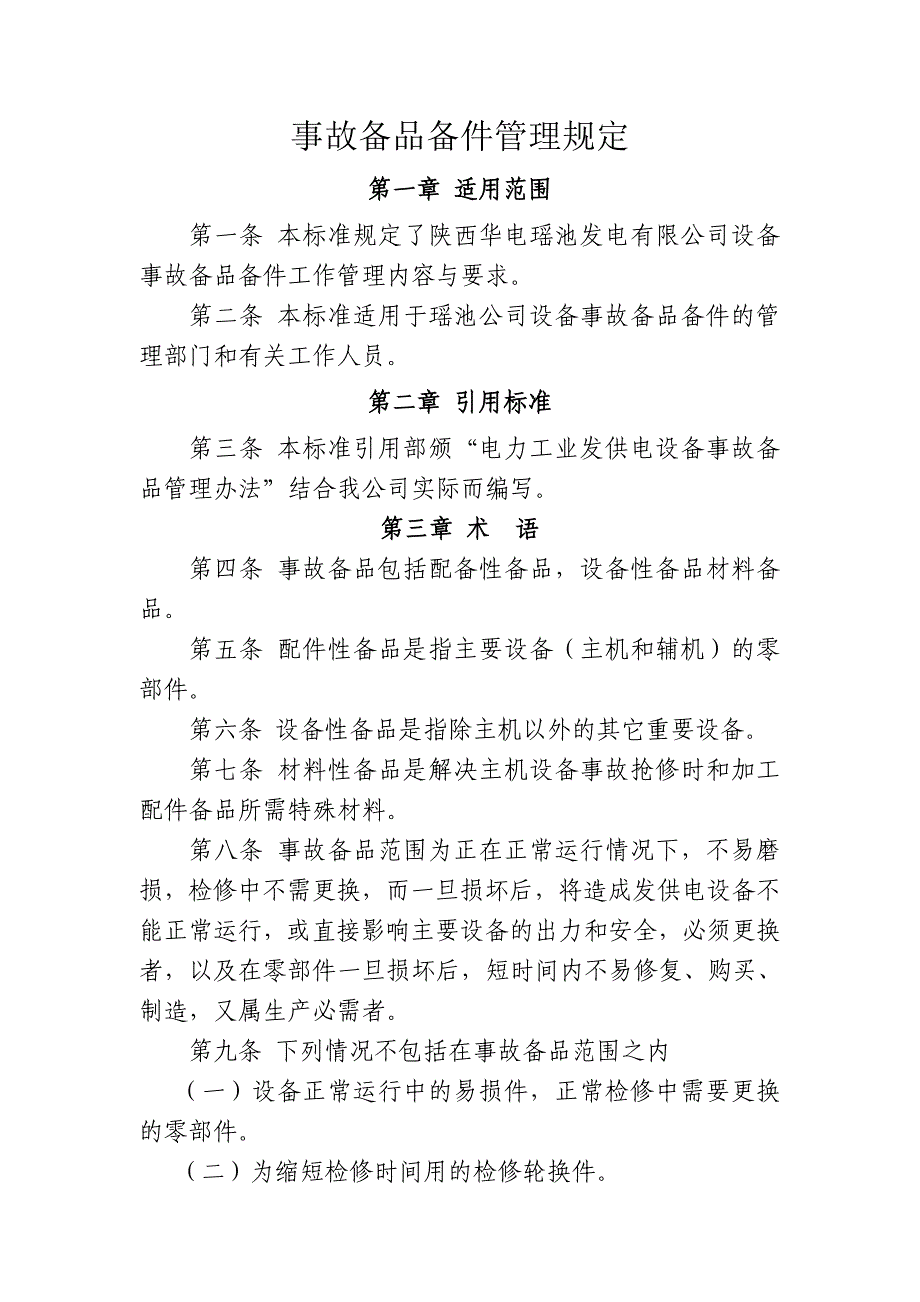 事故备品备件管理规定
第一章 适用范围
第一条 本标准规定了陕西华电瑶池发电有限公司设备
事故备品备件工作管理内容与要求。
第二条 本标准适用于瑶池公司设备事故备品备件的管
理部门和有关工作人员。
第二章 引用标准
第三条 本标准引用部颁“电力工业发供电设备事故备
品管理办法”结合我公司实际而编写。
第三章 术　语
第四条 事故备品包括配备性备品，设备性备品材料备
品。
第五条 配件性备品是指主要设备（主机和辅机）的零
部件。
第六条 设备性备品是指除主机以外的其它重要设备。
第七条 材料性备品是解决主机设备事故抢修时和加工
配件备品所需特殊材料。
第八条 事故备品范围为正在正常运行情况下，不易磨
损，检修中不需更换，而一旦损坏后，将造成发供电设备不
能正常运行，或直接影响主要设备的出力和安全，必须更换
者，以及在零部件一旦损坏后，短时间内不易修复、购买、
制造，又属生产必需者。
第九条 下列情况不包括在事故备品范围之内
（一）设备正常运行中的易损件，正常检修中需要更换
的零部件。
（二）为缩短检修时间用的检修轮换件。